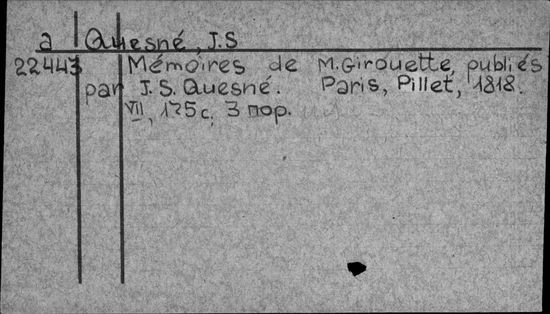 a Quesné, J.S
22443 Mémoires de M.Girouette, publiés
par J.S. Quesné. Paris, Pillet, 1818.
VII, 175 с. 3 пор.